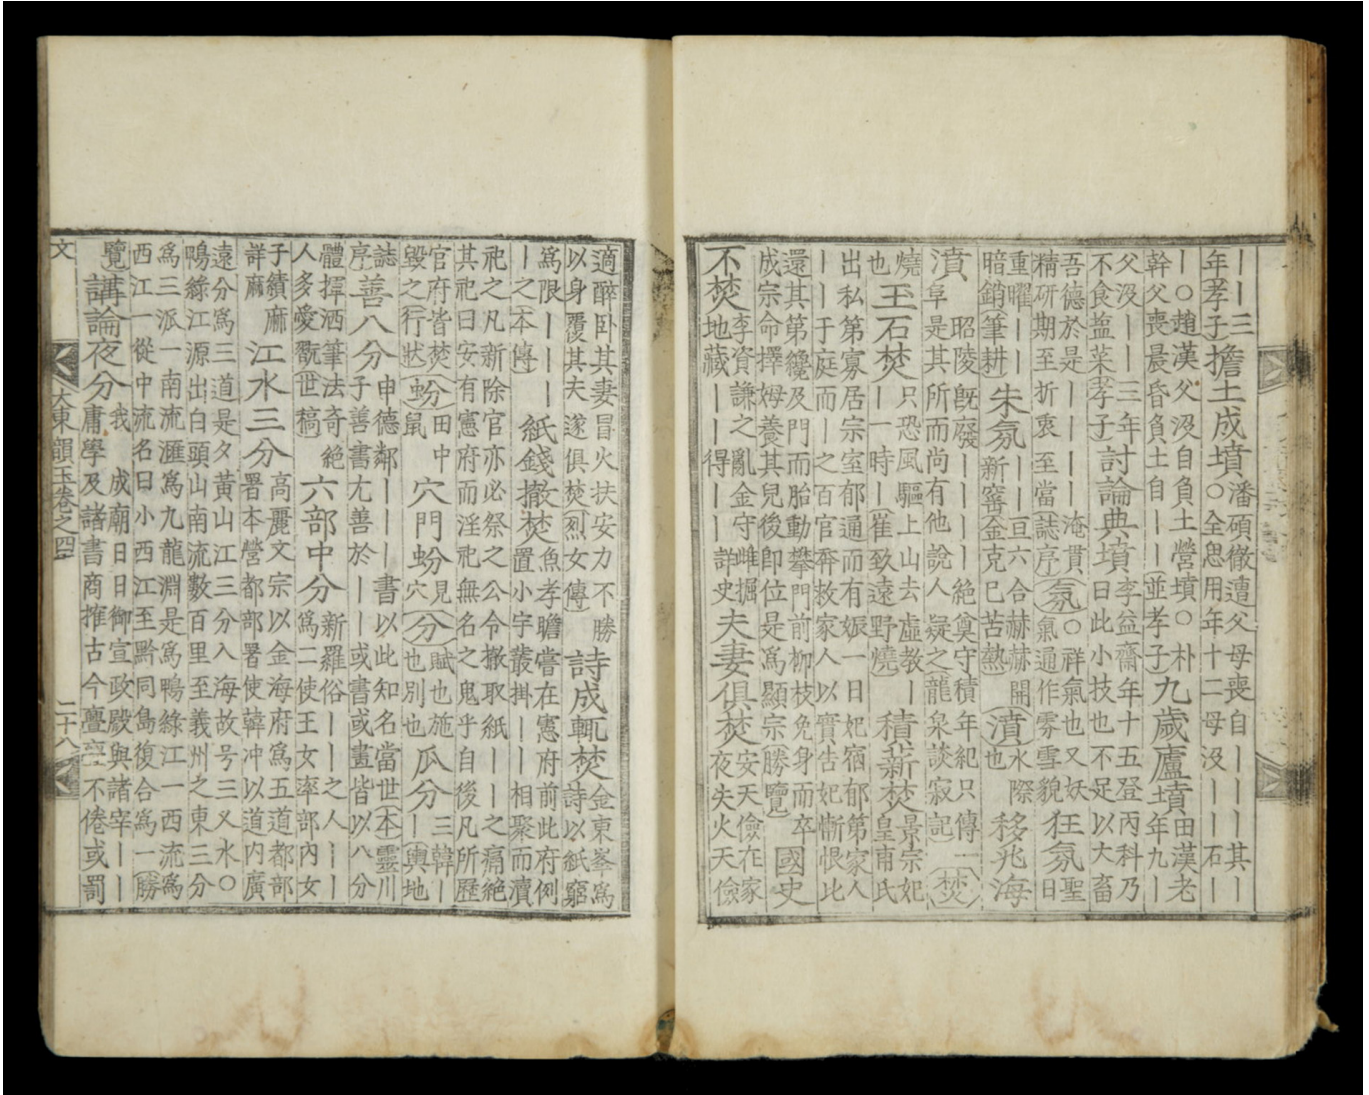 丨丨三年孝子擔土成墳潘碩徹遭父母喪自丨丨丨丨其丨○全思用年十二母沒丨丨丨石丨
丨○趙漢父沒自負土營墳○朴幹父喪晨昏負土自丨丨並孝子九歲廬墳田漢老年九丨
父沒丨丨三年不食塩菜孝子討論典墳李益齋年十五登丙科乃曰此小技也不足以大畜
吾德於是丨丨丨丨淹貫精研期至折衷至當誌序氛○祥氣也又妖氣通作雰雪貌狂氛聖日
重曜丨丨暗銷筆耕朱氛丨丨亘六合赫赫開新窰金克己苦熱濆水際也移兆海
濆昭陵旣廢丨丨丨丨絶奠守積年紀只傳一阜是其所而尚有他說人疑之龍泉談寂記焚
燒也玉石焚只恐風驅上山去虛教丨丨丨一時丨崔致遠野燒積薪焚景宗妃皇甫氏
出私第寡居宗室郁通而有娠一日妃宿郁第家人丨丨于庭而丨之百官齊救家人以實告妃慚恨比
還其第纔及門而胎動攀門前柳枝免身而卒成宗命擇姆養其兒後卽位是爲顯宗勝覽國史
不焚李資謙之亂金守雌掘地藏丨丨得丨丨許史夫妻俱焚安天儉在家夜失火天儉
適醉卧其妻冒火扶安力不勝以身覆其夫遂俱焚烈女傳詩成輒焚金東峯爲詩以紙窮
爲限丨丨丨丨之本傳紙錢撤焚魚孝瞻嘗在憲府前此府例置小宇叢掛丨丨相聚而瀆
祀之凡新除官亦必祭之公令撤取紙丨丨之痛絶其祀曰安有憲府而淫祀無名之鬼乎自後凡所歷
官府皆焚毀之行狀蚡田中鼠穴門蚡見穴分賦也施也別也瓜分三韓丨丨輿地
誌善八分申德鄰丨丨丨書以此知名當世本靈川序子善書尤善於丨丨或書或畫皆以八分
體揮洒筆法奇絶人多愛翫世稿六部中分新羅俗丨丨之人丨丨爲二使王女率部內女
子績麻詳麻江水三分高麗文宗以金海府爲五道都部署本營都部署使韓冲以道內廣
遠分爲三道是夕黃山江三分入海故号三叉水○鴨綠江源出白頭山南流數百里至義州之東三分
爲三派一南流滙爲九龍淵是爲鴨綠江一西流爲西江一從中流名曰小西江至黔同島復合爲一勝
覽講論夜分我成廟日日御宣政殿與諸宰丨丨庸學及諸書商搉古今亹亹不倦或罰
文 大東韻玉卷之四 二十八